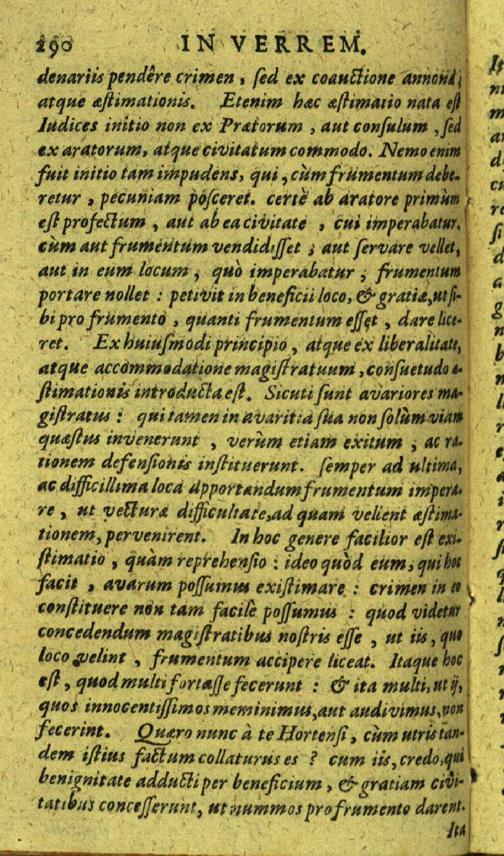 290 IN VERREM.
denariis pendêre crimen, sed ex coauctione annonæ,
atque æstimationis. Etenim hæc æstimatio nata est
Iudices initio non ex Prætorum, aut consulum, sed
ex aratorum, atque civitatum commodo. Nemo enim
fuit initio tam impudens, qui, cùm frumentum debe-
retur, pecuniam posceret. certè ab aratore primùm
est profectum, aut ab ea civitate, cui imperabatur.
cùm aut frumentum vendidisset; aut servare vellet,
aut in eum locum, quò imperabatur, frumentum
portare nollet: petivit in beneficii loco, & gratiæ, ut si-
bi pro frumento, quanti frumentum esset, dare lice-
ret. Ex huiusmodi principio, atque ex liberalitate,
atque accommodatione magistratuum, consuetudo æ-
stimationis introducta est. Sicuti sunt avariores ma-
gistratus: qui tamen in avaritia sua non solùm viam
quæstus invenerunt, verùm etiam exitum, ac ra-
tionem defensionis instituerunt. semper ad ultima,
ac difficillima loca apportandum frumentum impera-
re, ut vecturæ difficultate, ad quam velient æstima-
tionem, pervenirent. In hoc genere facilior est exi-
stimatio, quàm reprehensio: ideo quòd eum, qui hoc
facit, avarum possumus existimare: crimen in eo
constituere non tam facile possumus: quod videtur
concedendum magistratibus nostris esse, ut iis, quo
loco velint, frumentum accipere liceat. Itaque hoc
est, quod multi fortasse fecerunt: & ita multi, ut ij,
quos innocentissimos meminimus, aut audivimus, non
fecerint. Quæro nunc à te Hortensi, cùm utris tan-
dem istius factum collaturus es? cum iis, credo, qui
benignitate adducti per beneficium, & gratiam civi-
tatibus concesserunt, ut nummos pro frumento darent.
Ita